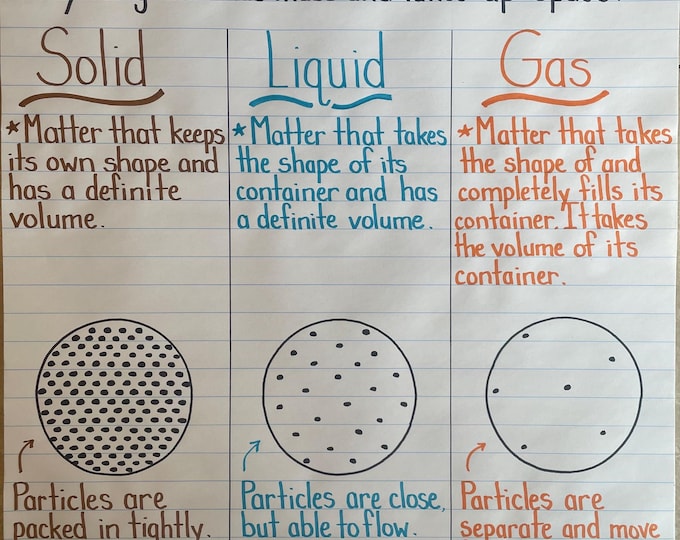 Solid
*Matter that keeps
its own shape and
has a definite
volume.
Particles are
packed in tightly.
Liquid
*Matter that takes
the shape of its
container and has
a definite volume.
Particles are close,
but able to flow.
Gas
*Matter that takes
the shape of and
completely fills its
container. It takes
the volume of its
container.
Particles are
separate and move